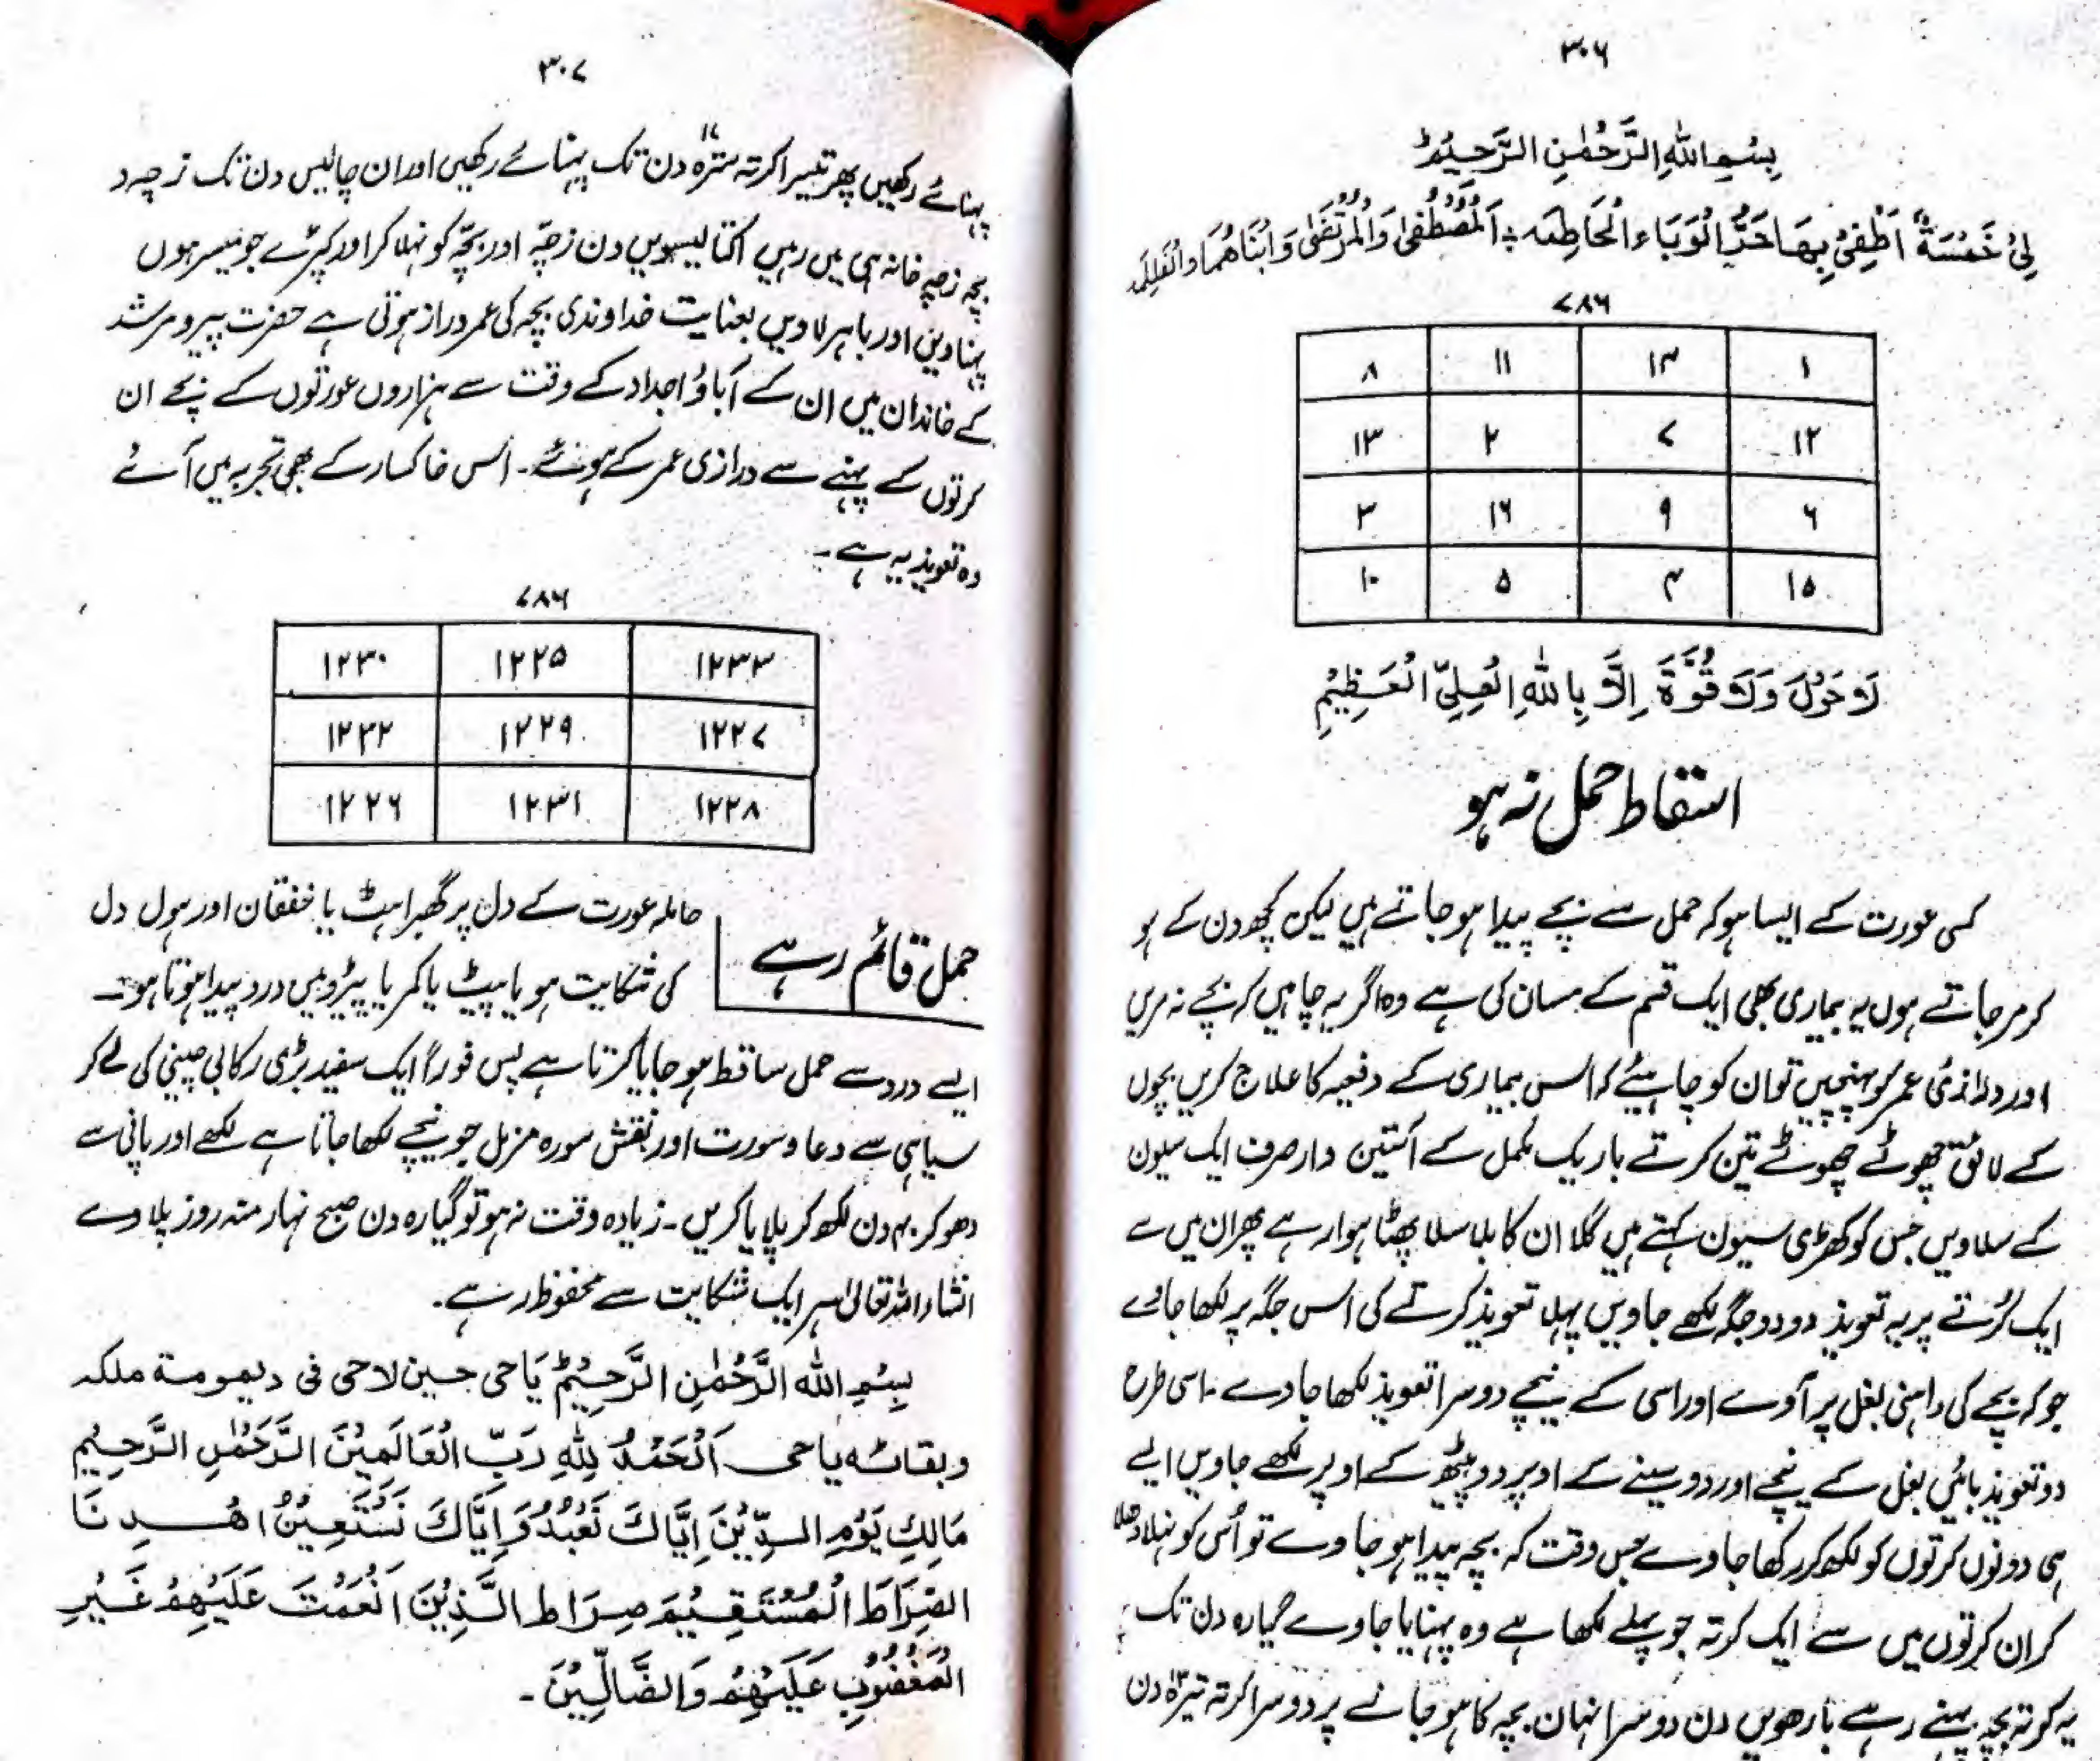 ۳۰۶
بِسْمِ اللهِ الرَّحْمٰنِ الرَّحِیْمِؕ
لِیْ خَمْسَةٌ اُطْفِیْ بِهَا حَرَّ الْوَبَاءِ الْحَاطِمَه ؞ اَلْمُصْطَفٰی وَالْمُرْتَضٰی وَابْنَاهُمَا وَالْفَاطِمَه
۷۸۶
۱ ۱۴ ۱۱ ۸
۱۲ ۷ ۲ ۱۳
۶ ۹ ۱۶ ۳
۱۵ ۴ ۵ ۱۰
لَاحَوْلَ وَلَا قُوَّةَ اِلَّا بِاللهِ الْعَلِیِّ الْعَظِیْمِ
استقاط حمل نہ ہو
کسی عورت کے ایسا ہو کہ حمل سے بچے پیدا ہو جاتے ہیں لیکن کچھ دن کے ہو
کر مر جاتے ہوں یہ بیماری بھی ایک قسم کے مسان کی ہے وہ اگر یہ چاہیں کہ بچے نہ مریں
اور درازئ عمر کو پہنچیں تو ان کو چاہیئے کہ اس بیماری کے دفعیہ کا علاج کریں بچوں
کے لائق چھوٹے چھوٹے تین کرتے باریک ململ کے آستین دار صرف ایک سیون
کے سلاویں جس کو کھڑی سیون کہتے ہیں گلا ان کا بلا سلا پھٹا ہوا رہے پھر ان میں سے
ایک کُرتے پر یہ تعویذ دو دو جگہ لکھے جاویں پہلا تعویذ کرتے کی اس جگہ پر لکھا جاوے
جو کہ بچے کی داہنی بغل پر آوے اور اسی کے نیچے دوسرا تعویذ لکھا جاوے۔ اسی طرح
دو تعویذ بائیں بغل کے نیچے اور دو سینے کے اوپر دو پیٹھ کے اوپر لکھے جاویں ایسے
ہی دونوں کرتوں کو لکھ کر رکھا جاوے جس وقت کہ بچہ پیدا ہو جاوے تو اُس کو نہلا دھلا
کر ان کرتوں میں سے ایک کرتہ جو پہلے لکھا ہے وہ پہنایا جاوے گیارہ دن تک
یہ کرتہ بچہ پہنے رہے بارھویں دن دوسرا نہان بچہ کا ہو جانے پر دوسرا کرتہ تیرہ دن
۳۰۷
پہنائے رکھیں پھر تیسرا کرتہ سترہ ۱۷ دن تک پہنائے رکھیں اور ان چالیس دن تک زچہ و
بچہ زچہ خانہ ہی میں رہیں اکتالیسویں دن زچّہ اور بچّہ کو نہلا کر اور کپڑے جو میسر ہوں
پہناویں اور باہر لاویں بعنایت خداوندی بچہ کی عمر دراز ہوتی ہے حضرت پیر و مرشد
کے خاندان میں ان کے آباؤ اجداد کے وقت سے ہزاروں عورتوں کے بچے ان
کرتوں کے پہنے سے درازی عمر کے ہوئے۔ اس خاکسار کے بھی تجربہ میں آئے
وہ تعویذ یہ ہے۔
۷۸۶
۱۲۳۳ ۱۲۲۵ ۱۲۳۰
۱۲۲۷ ۱۲۲۹ ۱۲۳۲
۱۲۲۸ ۱۲۳۱ ۱۲۲۶
حمل قائم رہے
حاملہ عورت کے دل پر گھبراہٹ یا خفقان اور ہول دل
کی شکایت ہو یا پیٹ یا کمر یا پیڑو میں درد پیدا ہوتا ہو۔
ایسے درد سے حمل ساقط ہو جایا کرتا ہے پس فوراً ایک سفید بڑی رکابی چینی کی لے کر
سیاہی سے دعا و سورت اور نقش سورہ مزمل جو نیچے لکھا جاتا ہے لکھے اور پانی سے
دھو کر ۴۰ دن لکھ کر پلایا کریں۔ زیادہ وقت نہ ہو تو گیارہ دن صبح نہار منہ روز پلاوے
انشاء اللہ تعالیٰ ہر ایک شکایت سے محفوظ رہے۔
بِسْمِ اللهِ الرَّحْمٰنِ الرَّحِیْمِؕ یَا حی حسین لاحی فی دیمومة ملکه
وبقائه یاحی اَلْحَمْدُ لِلّٰهِ رَبِّ الْعَالَمِیْنَ الرَّحْمٰنِ الرَّحِیْمِ
مَالِكِ یَوْمِ الدِّیْنَ اِیَّاكَ نَعْبُدُ وَاِیَّاكَ نَسْتَعِیْنُ اهْدِنَا
الصِّرَاطَ الْمُسْتَقِیْمَ صِرَاطَ الَّذِیْنَ اَنْعَمْتَ عَلَیْهِمْ غَیْرِ
الْمَغْضُوْبِ عَلَیْهِمْ وَالضَّالِّیْنَ۔